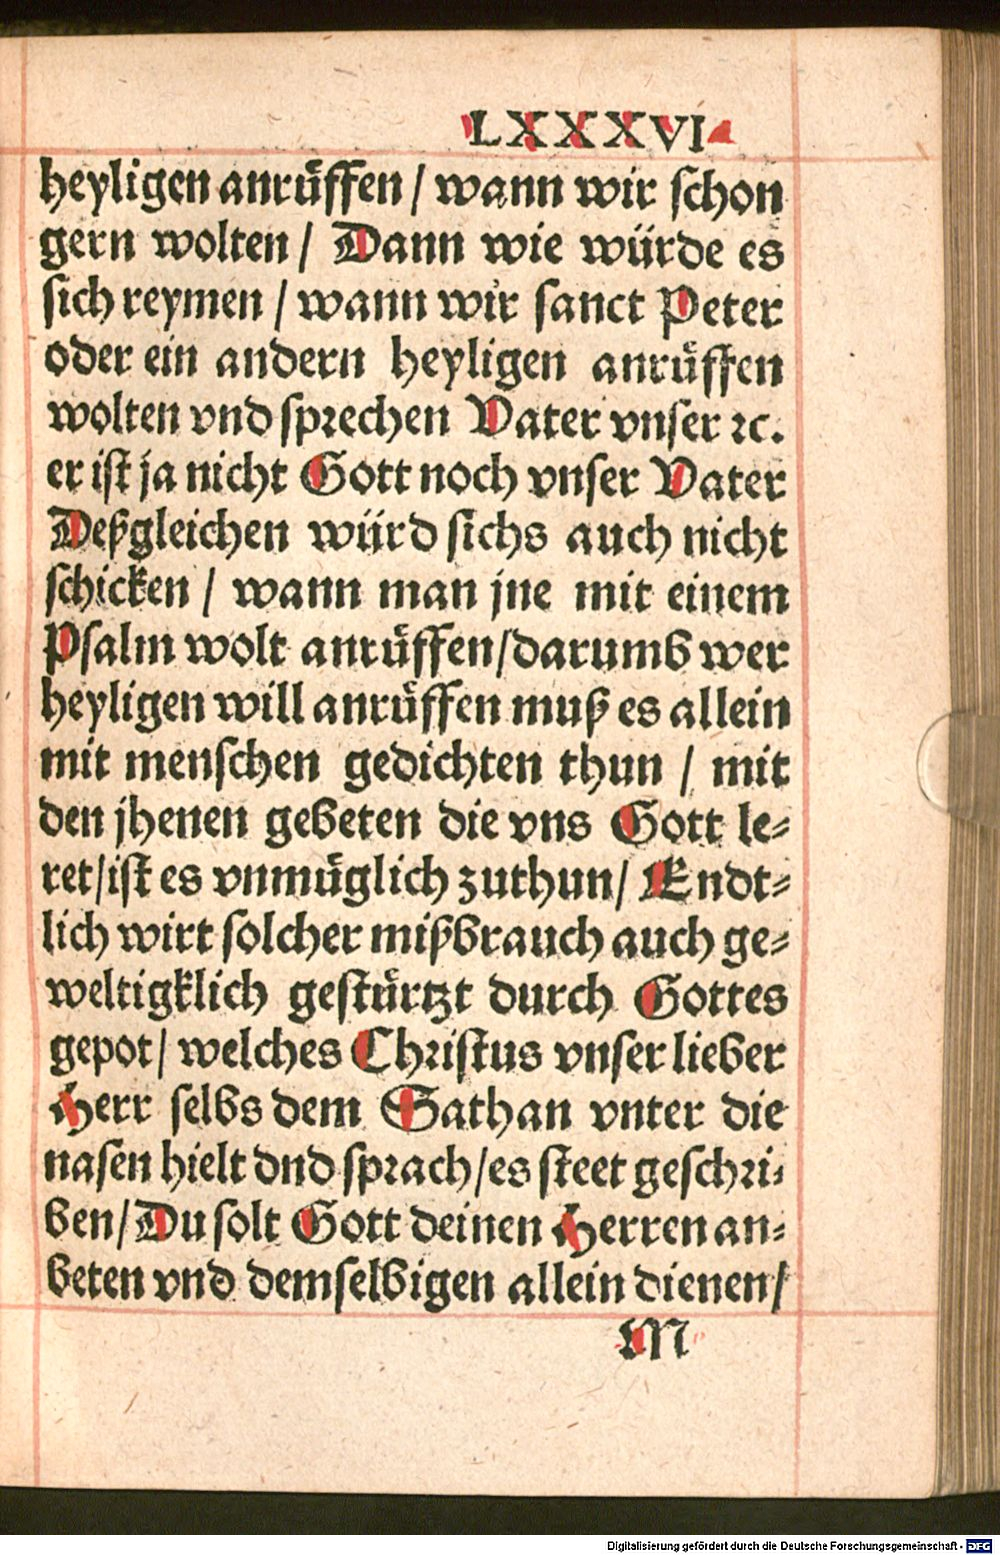 LXXXVI
heyligen anrůffen / wann wir schon
gern wolten / Dann wie würde es
sich reymen / wann wir sanct Peter
oder ein andern heyligen anrůffen
wolten vnd sprechen Vater vnser ꝛc.
er ist ja nicht Gott noch vnser Vater
Deßgleichen würd sichs auch nicht
schicken / wann man jne mit einem
Psalm wolt anrůffen / darumb wer
heyligen will anrůffen muß es allein
mit menschen gedichten thun / mit
den jhenen gebeten die vns Gott le⸗
ret / ist es vnmüglich zuthun / Endt⸗
lich wirt solcher mißbrauch auch ge⸗
weltigklich gestürtzt durch Gottes
gepot / welches Christus vnser lieber
Herr selbs dem Sathan vnter die
nasen hielt dnd sprach / es steet geschri⸗
ben / Du solt Gott deinen Herren an⸗
beten vnd demselbigen allein dienen /
M
Digitalisierung gefördert durch die Deutsche Forschungsgemeinschaft - DFG